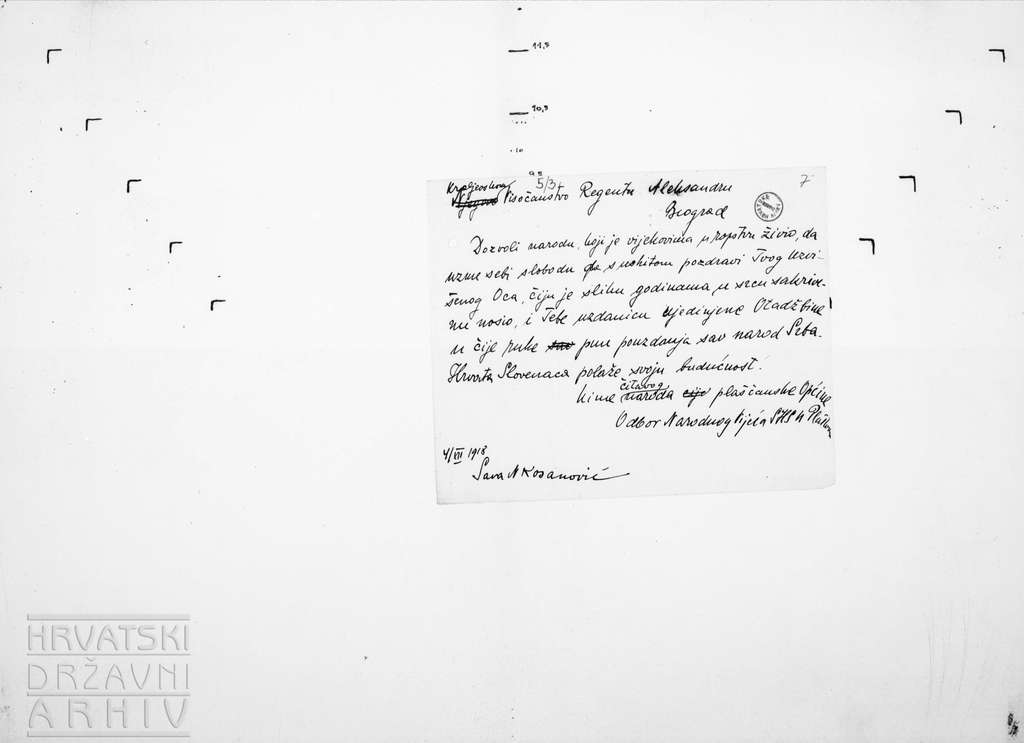 11,5
10,5
5/3
7
Kraljevskog
Njegovo Visočanstvo Regentu Aleksandru
Beograd
Dozvoli narodu, koji je vijekovima u ropstvu živio, da
uzme sebi slobodu da s ushitom pozdravi Tvog Uzvi-
šenog Oca, čiju je sliku godinama u srcu sakrive-
nu nosio, i Tebe uzdanicu ujedinjene Otadžbine
u čije ruke sav pun pouzdanja sav narod Srba
Hrvata Slovenaca polaže svoju budućnost.
U ime čitavog naroda cije plaščanske Općine
Odbor Narodnog Vijeća SHS u Plaškom
4/XII 1918
Sava N Kosanović
HRVATSKI
DRŽAVNI
ARHIV